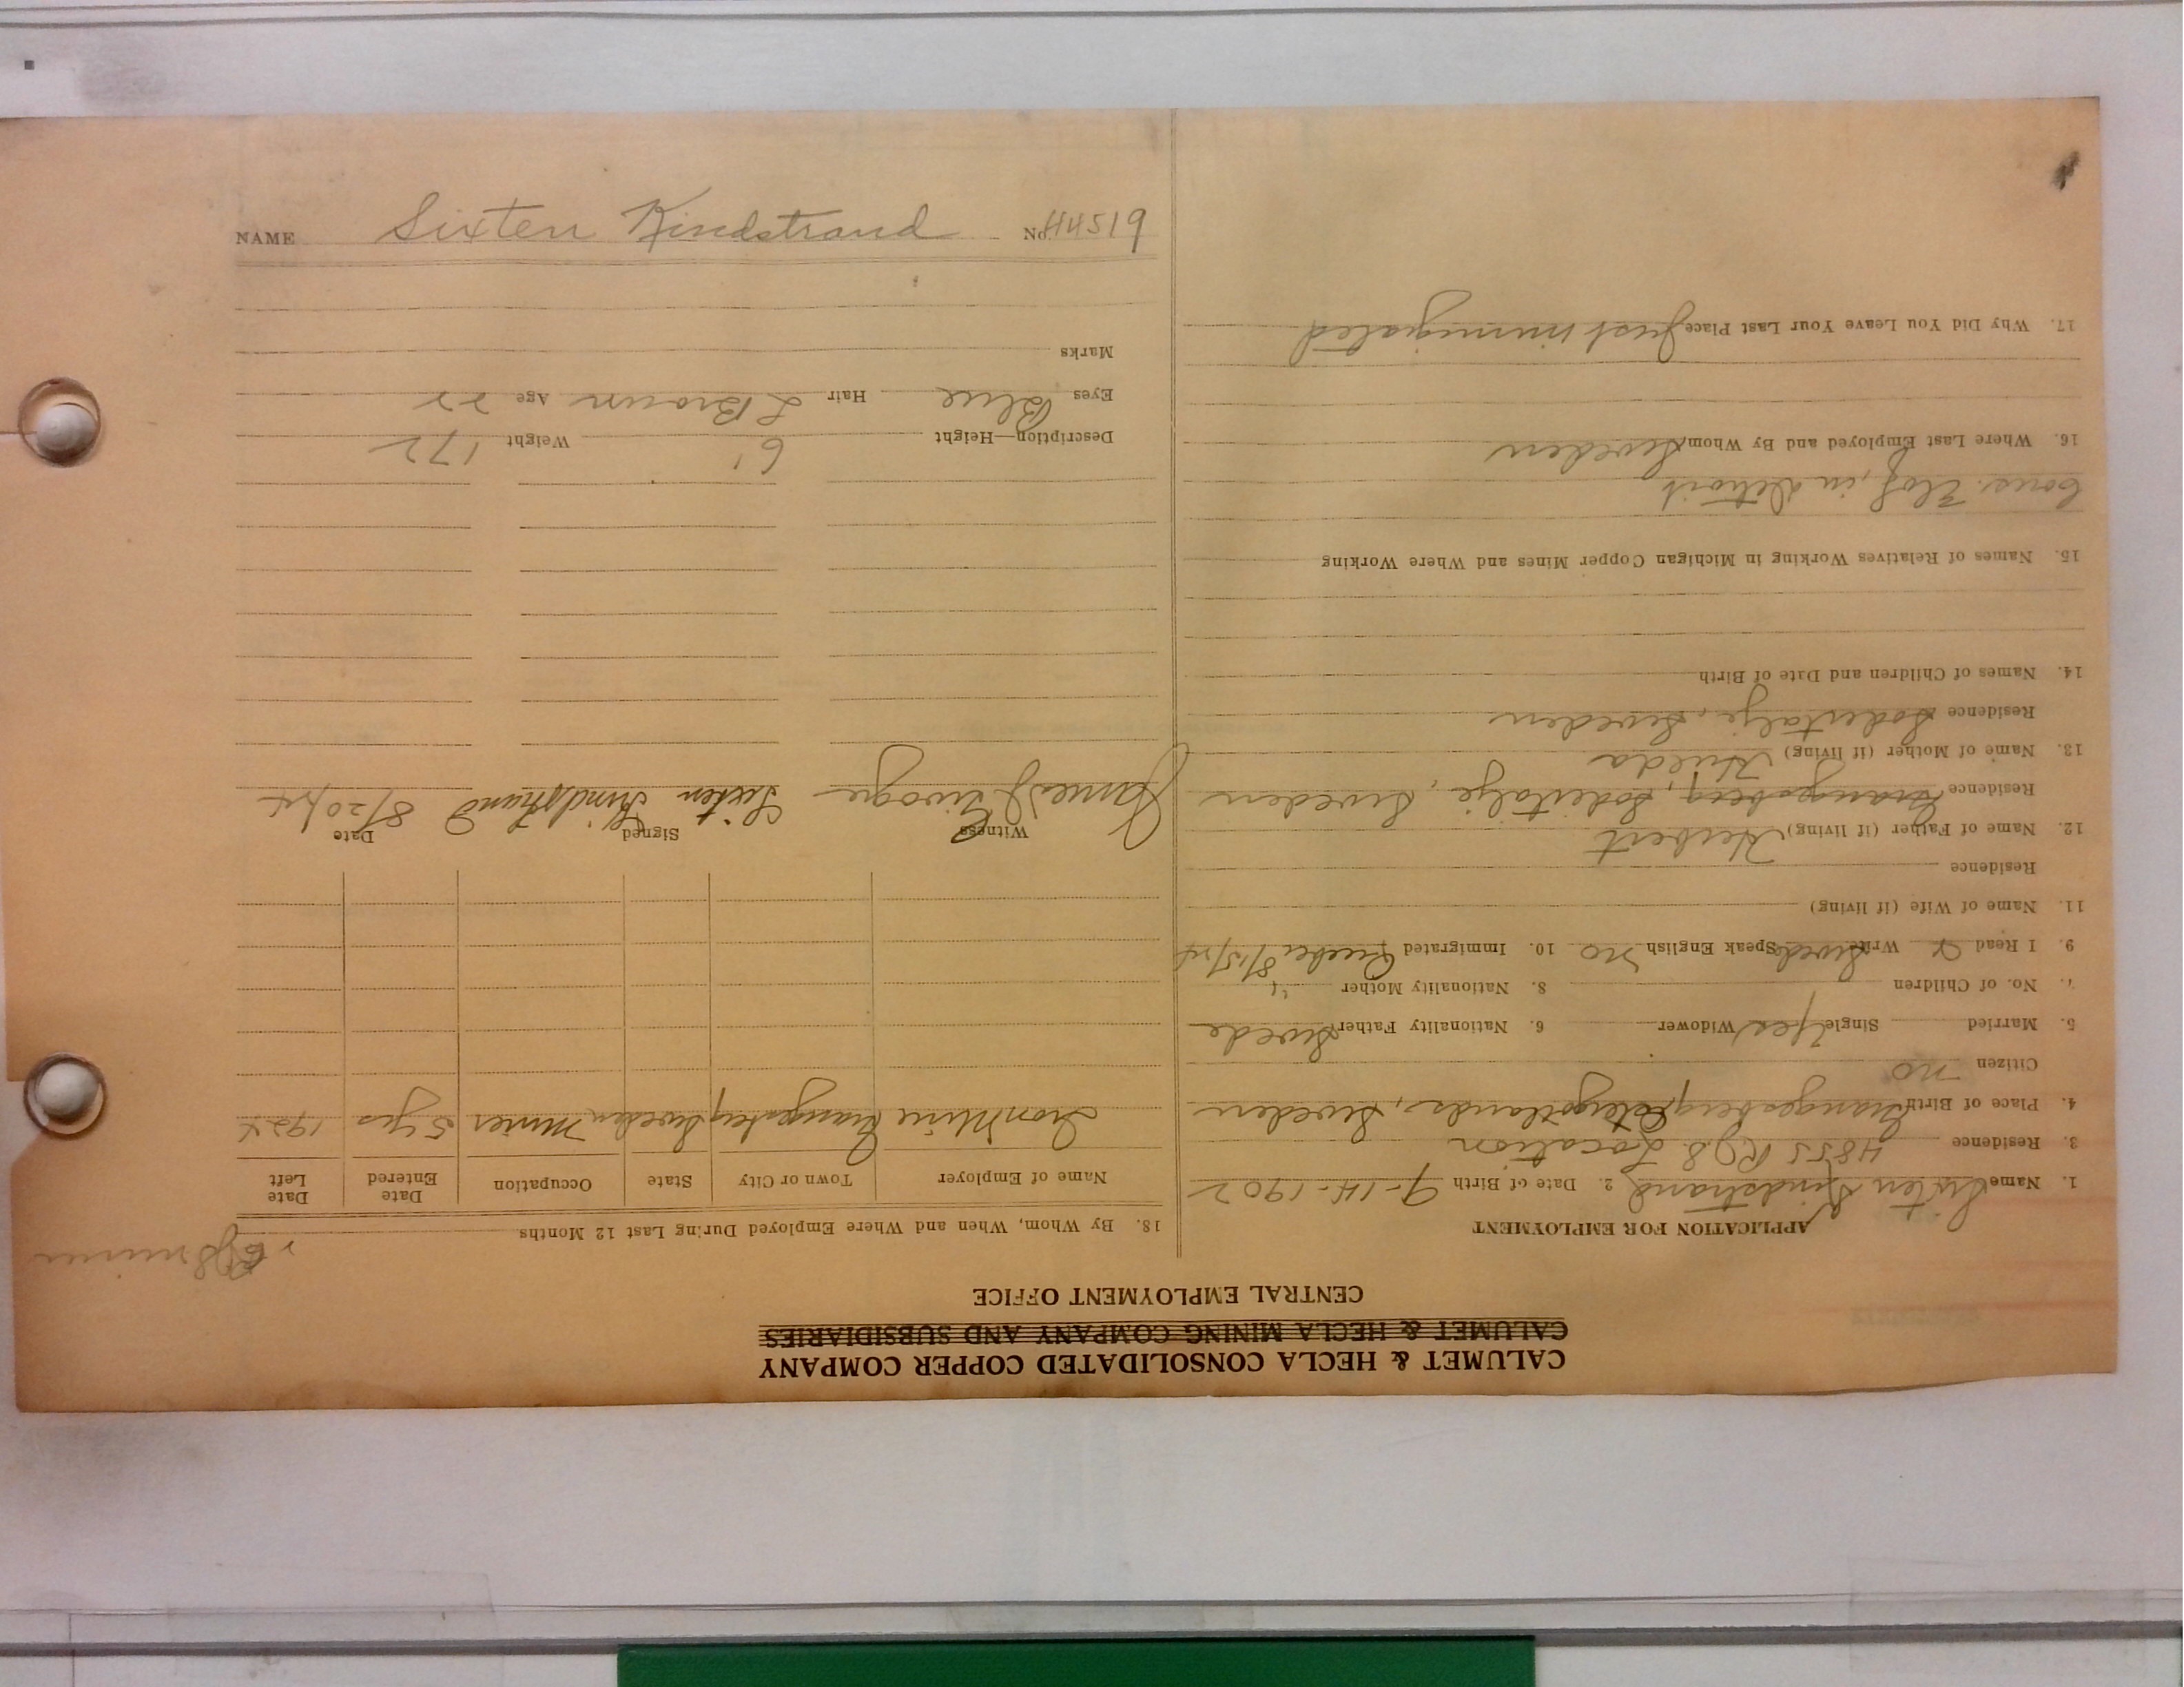 CALUMET & HECLA CONSOLIDATED COPPER COMPANY
CALUMET & HECLA MINING COMPANY AND SUBSIDIARIES
CENTRAL EMPLOYMENT OFFICE
APPLICATION FOR EMPLOYMENT
1. Name Sixten Kindstrand 2. Date of Birth 9-14-1902
3. Residence 4855 R J 8 Location
4. Place of Birth Grangesberg, Ostergotlands, Sweden
Citizen no
5. Married Single Yes Widower 6. Nationality Father Swede
7. No. of Children 8. Nationality Mother "
9. I Read & Write Swede Speak English no 10. Immigrated Quebec 8/15/24
11. Name of Wife (if living)
Residence
12. Name of Father (if living) Herbert
Residence Grangesberg, Sodertalje, Sweden
13. Name of Mother (if living) Hulda
Residence Sodertalje, Sweden
14. Names of Children and Date of Birth
15. Names of Relatives Working in Michigan Copper Mines and Where Working
Cous. Elof, in Detroit
16. Where Last Employed and By Whom Sweden
17. Why Did You Leave Your Last Place just immigrated
miner
18. By Whom, When and Where Employed During Last 12 Months
Name of Employer Town or City State Occupation Date Entered Date Left
Iron Mine Grangesberg Sweden Miner 5 yrs 1924
Witness Signed Date
James Sixten Kindstrand 8/20/24
Description—Height 6' Weight 172
Eyes Blue Hair L Brown Age 22
Marks
NAME Sixten Kindstrand No. 44519